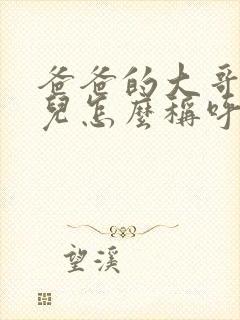 爸爸的大哥
兒怎麼稱呼
望溪